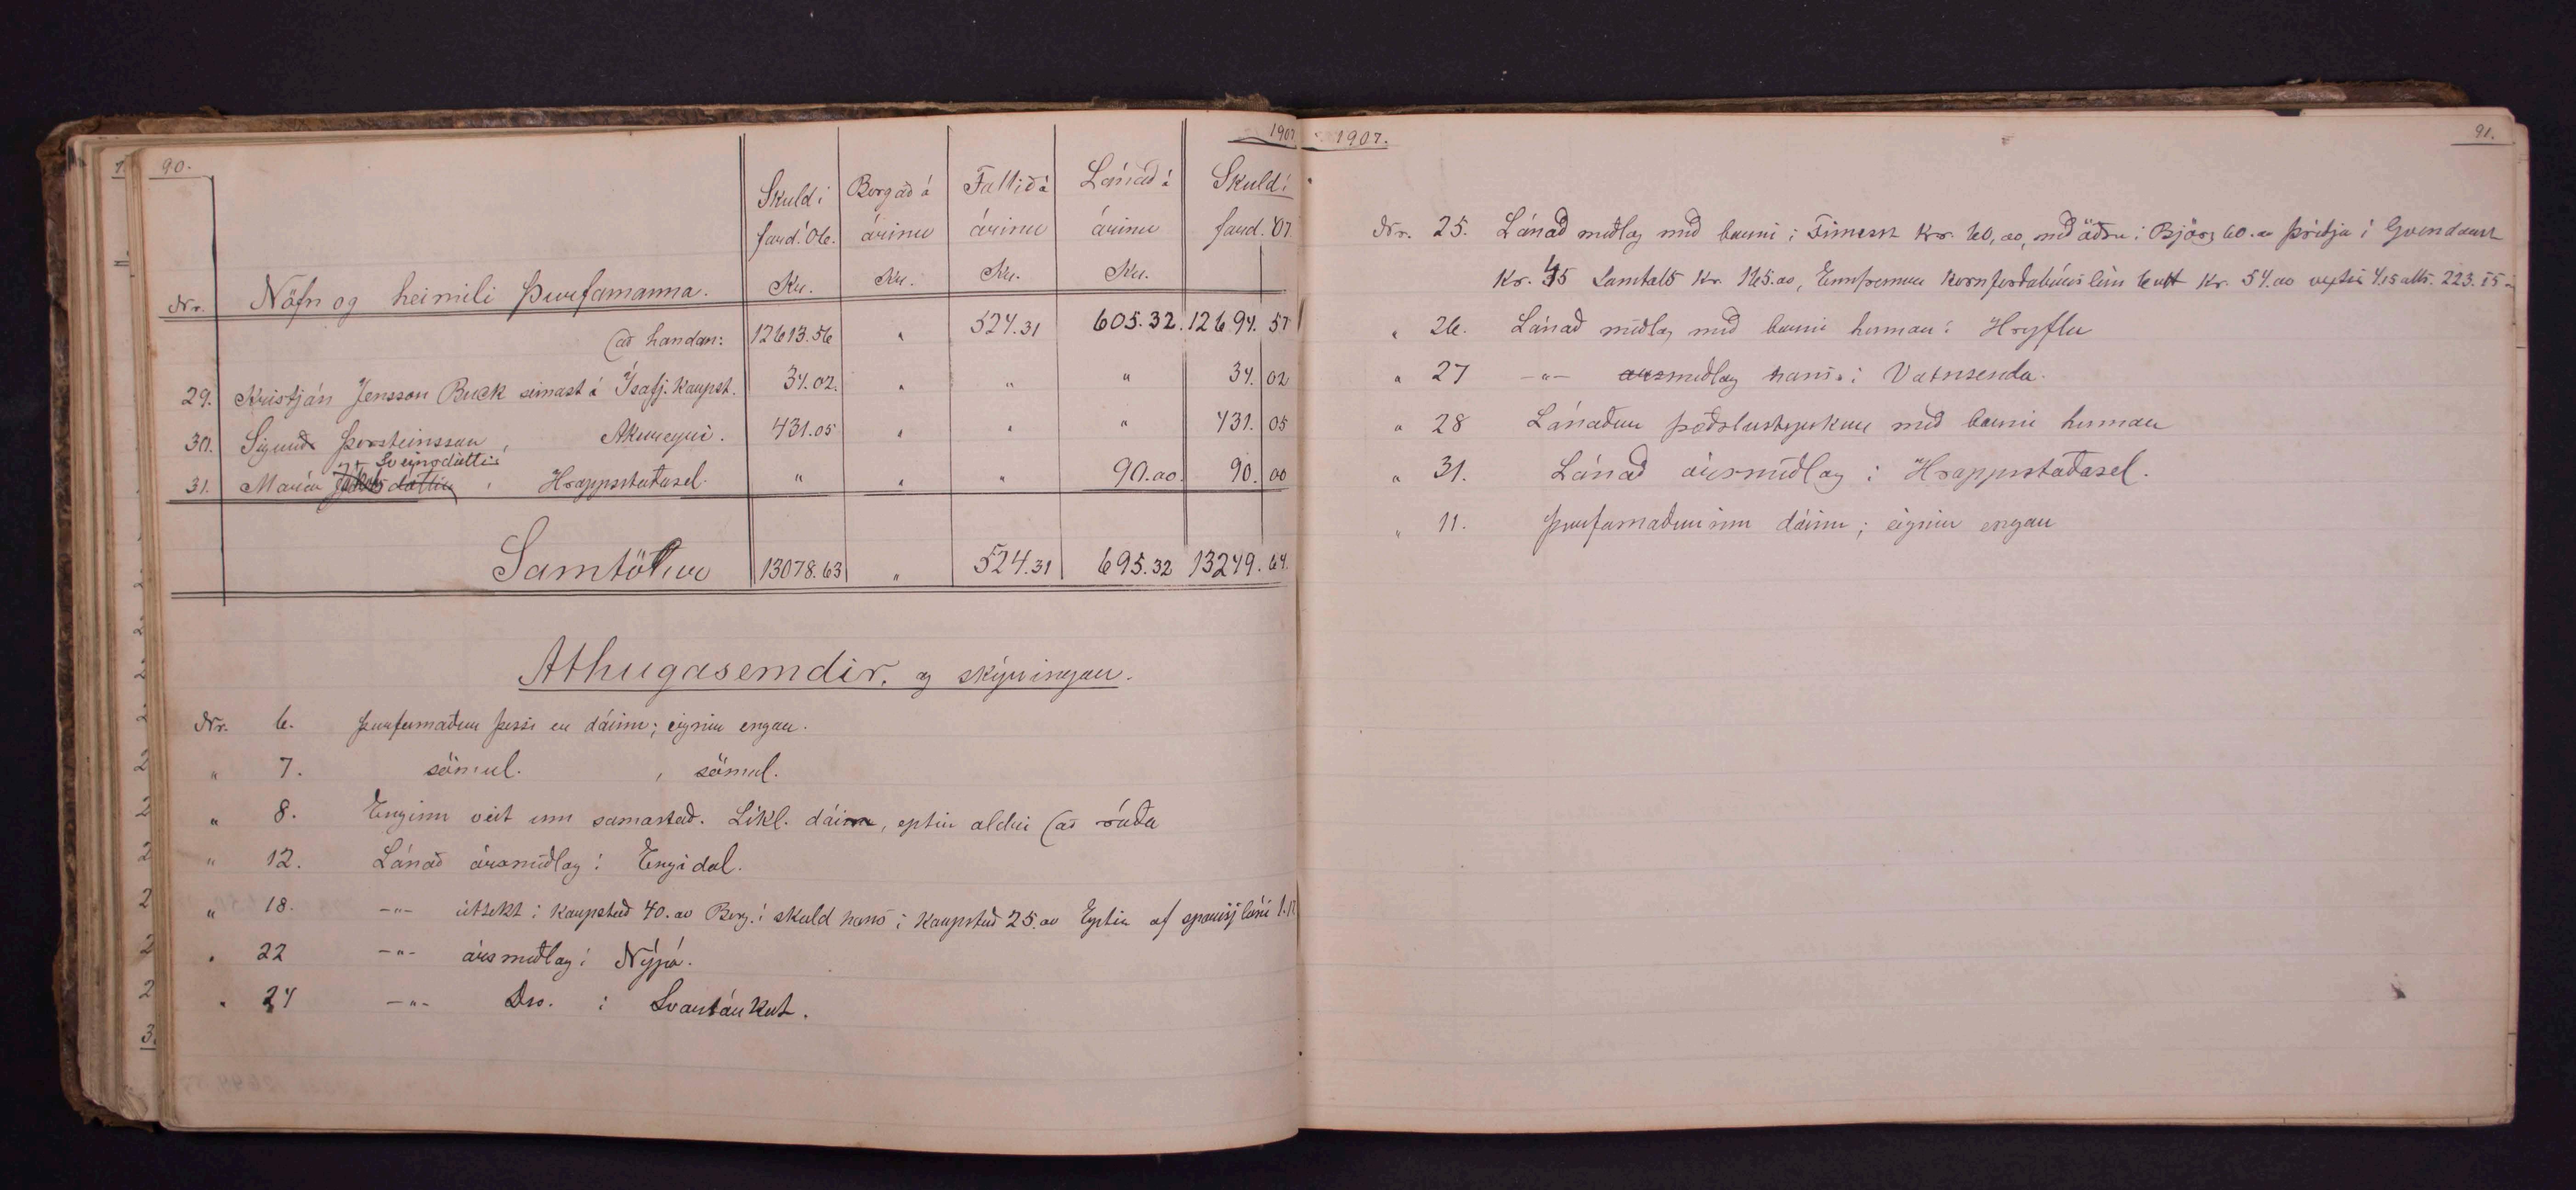 90.
1907
Skuld í Borgað á Fallið á Lánað á Skuld í
fard. '06. árinu árinu árinu fard. '07
Nr. Nöfn og heimili þurfamanna. Kr. Kr. Kr. Kr.
(að handan: 12613.56 " 524.31 605.32 12694.57
29. Kristján Jensson Buck seinast á Ísafj. kaupst. 34.02. " " " 34.02
30. Sigurður Þorsteinsson, Akureyri. 431.05 " " " 431.05
Sveinsdóttir
31. María Jakobsdóttir, Hrappsstaðasel. " " " 90.00 90.00
Samtölur 13078.63 " 524.31 695.32 13249.64.
Athugasemdir, og skýringar.
Nr. 6. Þurfamaður þessi er dáinn; eignir engar.
" 7. sömul. , sömul.
" 8. Enginn veit um samastað. Líkl. dáinn, eptir aldri (að ráða
" 12. Lánað ársmeðlag í Engidal.
" 18. -"- úttekt í kaupstað 40.00 Borg. í skuld hans í kaupstað 25.00 Eptir af sparisj láni
" 22 -"- ársmeðlag í Nýpá.
" 24 -"- Do. í Svartárkot.
1907.
91.
Nr. 25. Lánað meðlag með barni í Fremst Kr. 60,00, með öðru í Björg 60.00 þriðja í Gvendarst
Kr. 45 Samtals Kr. 165.00, Ennfremur kornforðabúrslán Kr. 54.00 vextir 4.15 alls. 223.15
" 26. Lánað meðlag með barni hennar í Hryflu
" 27 -"- ársmeðlag hans í Vatnsenda.
" 28 Lánaður fæðslustyrkur með barni hennar
" 31. Lánað ársmeðlag í Hrappstaðasel.
" 11. Þurfamaðurinn dáinn; eignir engar